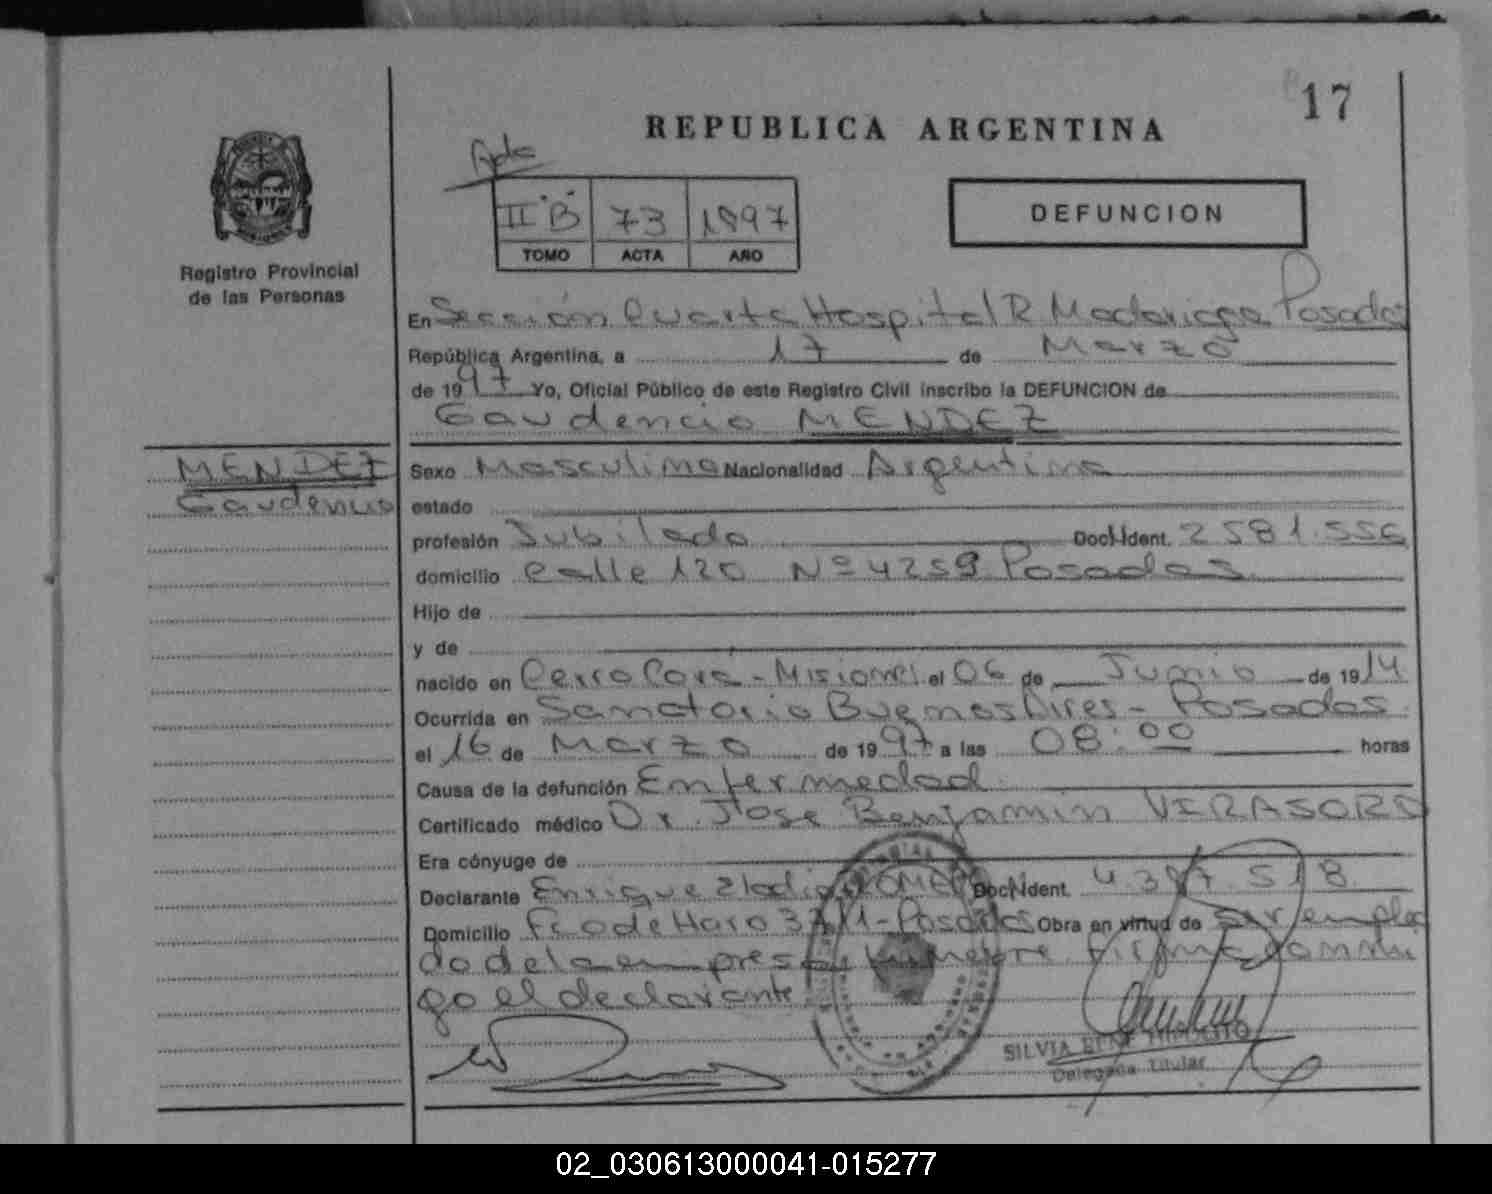 17
REPUBLICA ARGENTINA
Apdo
II "B" 73 1997
TOMO ACTA AÑO
DEFUNCION
Registro Provincial
de las Personas
En Sección Cuarta Hospital R. Madariaga Posadas
República Argentina, a 17 de Marzo
de 1997 Yo, Oficial Público de este Registro Civil inscribo la DEFUNCION de
Gaudencio MENDEZ
MENDEZ
Gaudencio
Sexo Masculino Nacionalidad Argentina
estado
profesión Jubilado Doc. Ident. 2581.556
domicilio Calle 120 Nº 4259 Posadas
Hijo de
y de
nacido en Cerro Corá - Misiones el 06 de Junio de 1914
Ocurrida en Sanatorio Buenos Aires - Posadas
el 16 de Marzo de 1997 a las 08:00 horas
Causa de la defunción Enfermedad
Certificado médico Dr. Jose Benjamin VIRASORO
Era cónyuge de
Declarante Enrique Eladio Doc. Ident.
Domicilio Fco de Haro - Posadas Obra en virtud de ser emplea
do de la empresa firma conmi
go el declarante
SILVIA HIPOLITO
Delegada Titular
02_030613000041-015277